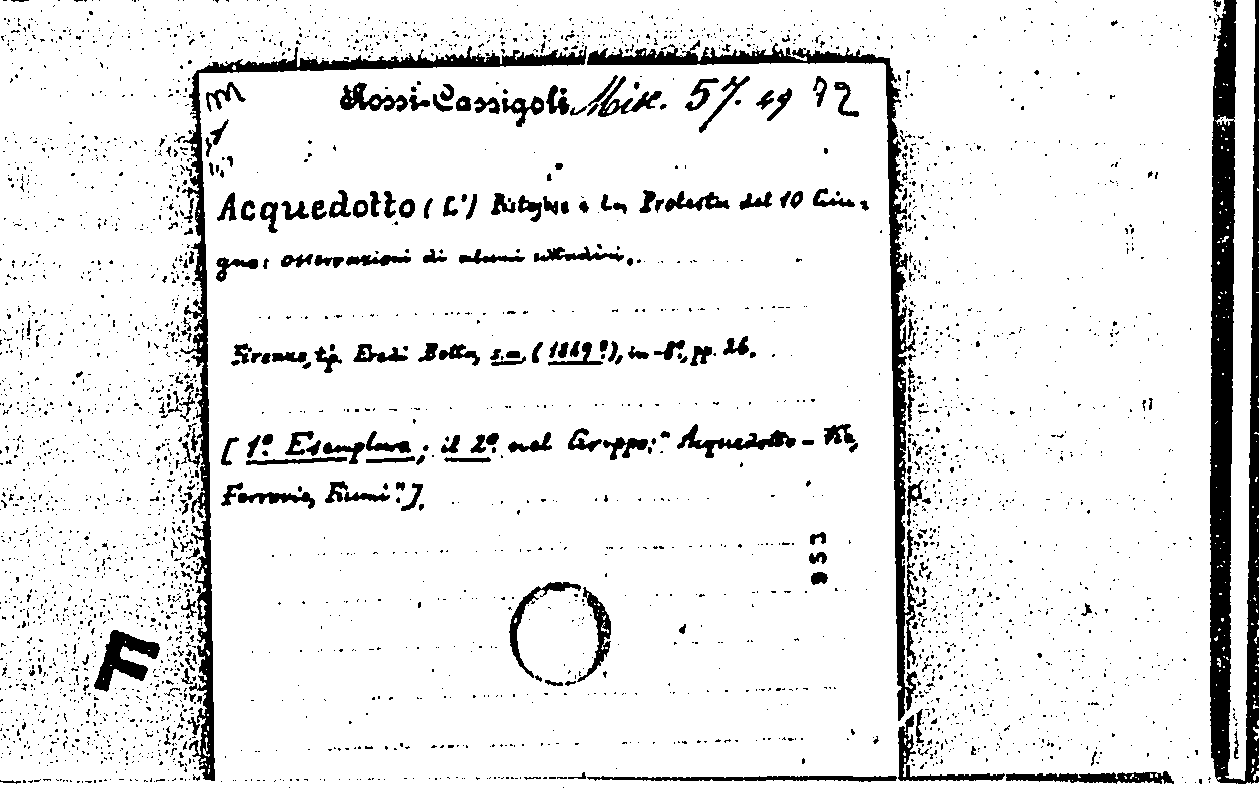 Rossi-Cassigoli Misc. 57. 49 72
Acquedotto (L') Pistojese e la Protesta del 10 Giu-
gno: osservazioni di alcuni cittadini.
Firenze, tip. Eredi Botta, s.a. (1869?), in-8º, pp. 26.
[1º. Esemplare; il 2º. nel Gruppo: "Acquedotto - Vie,
Ferrovie, Fiumi".].
F